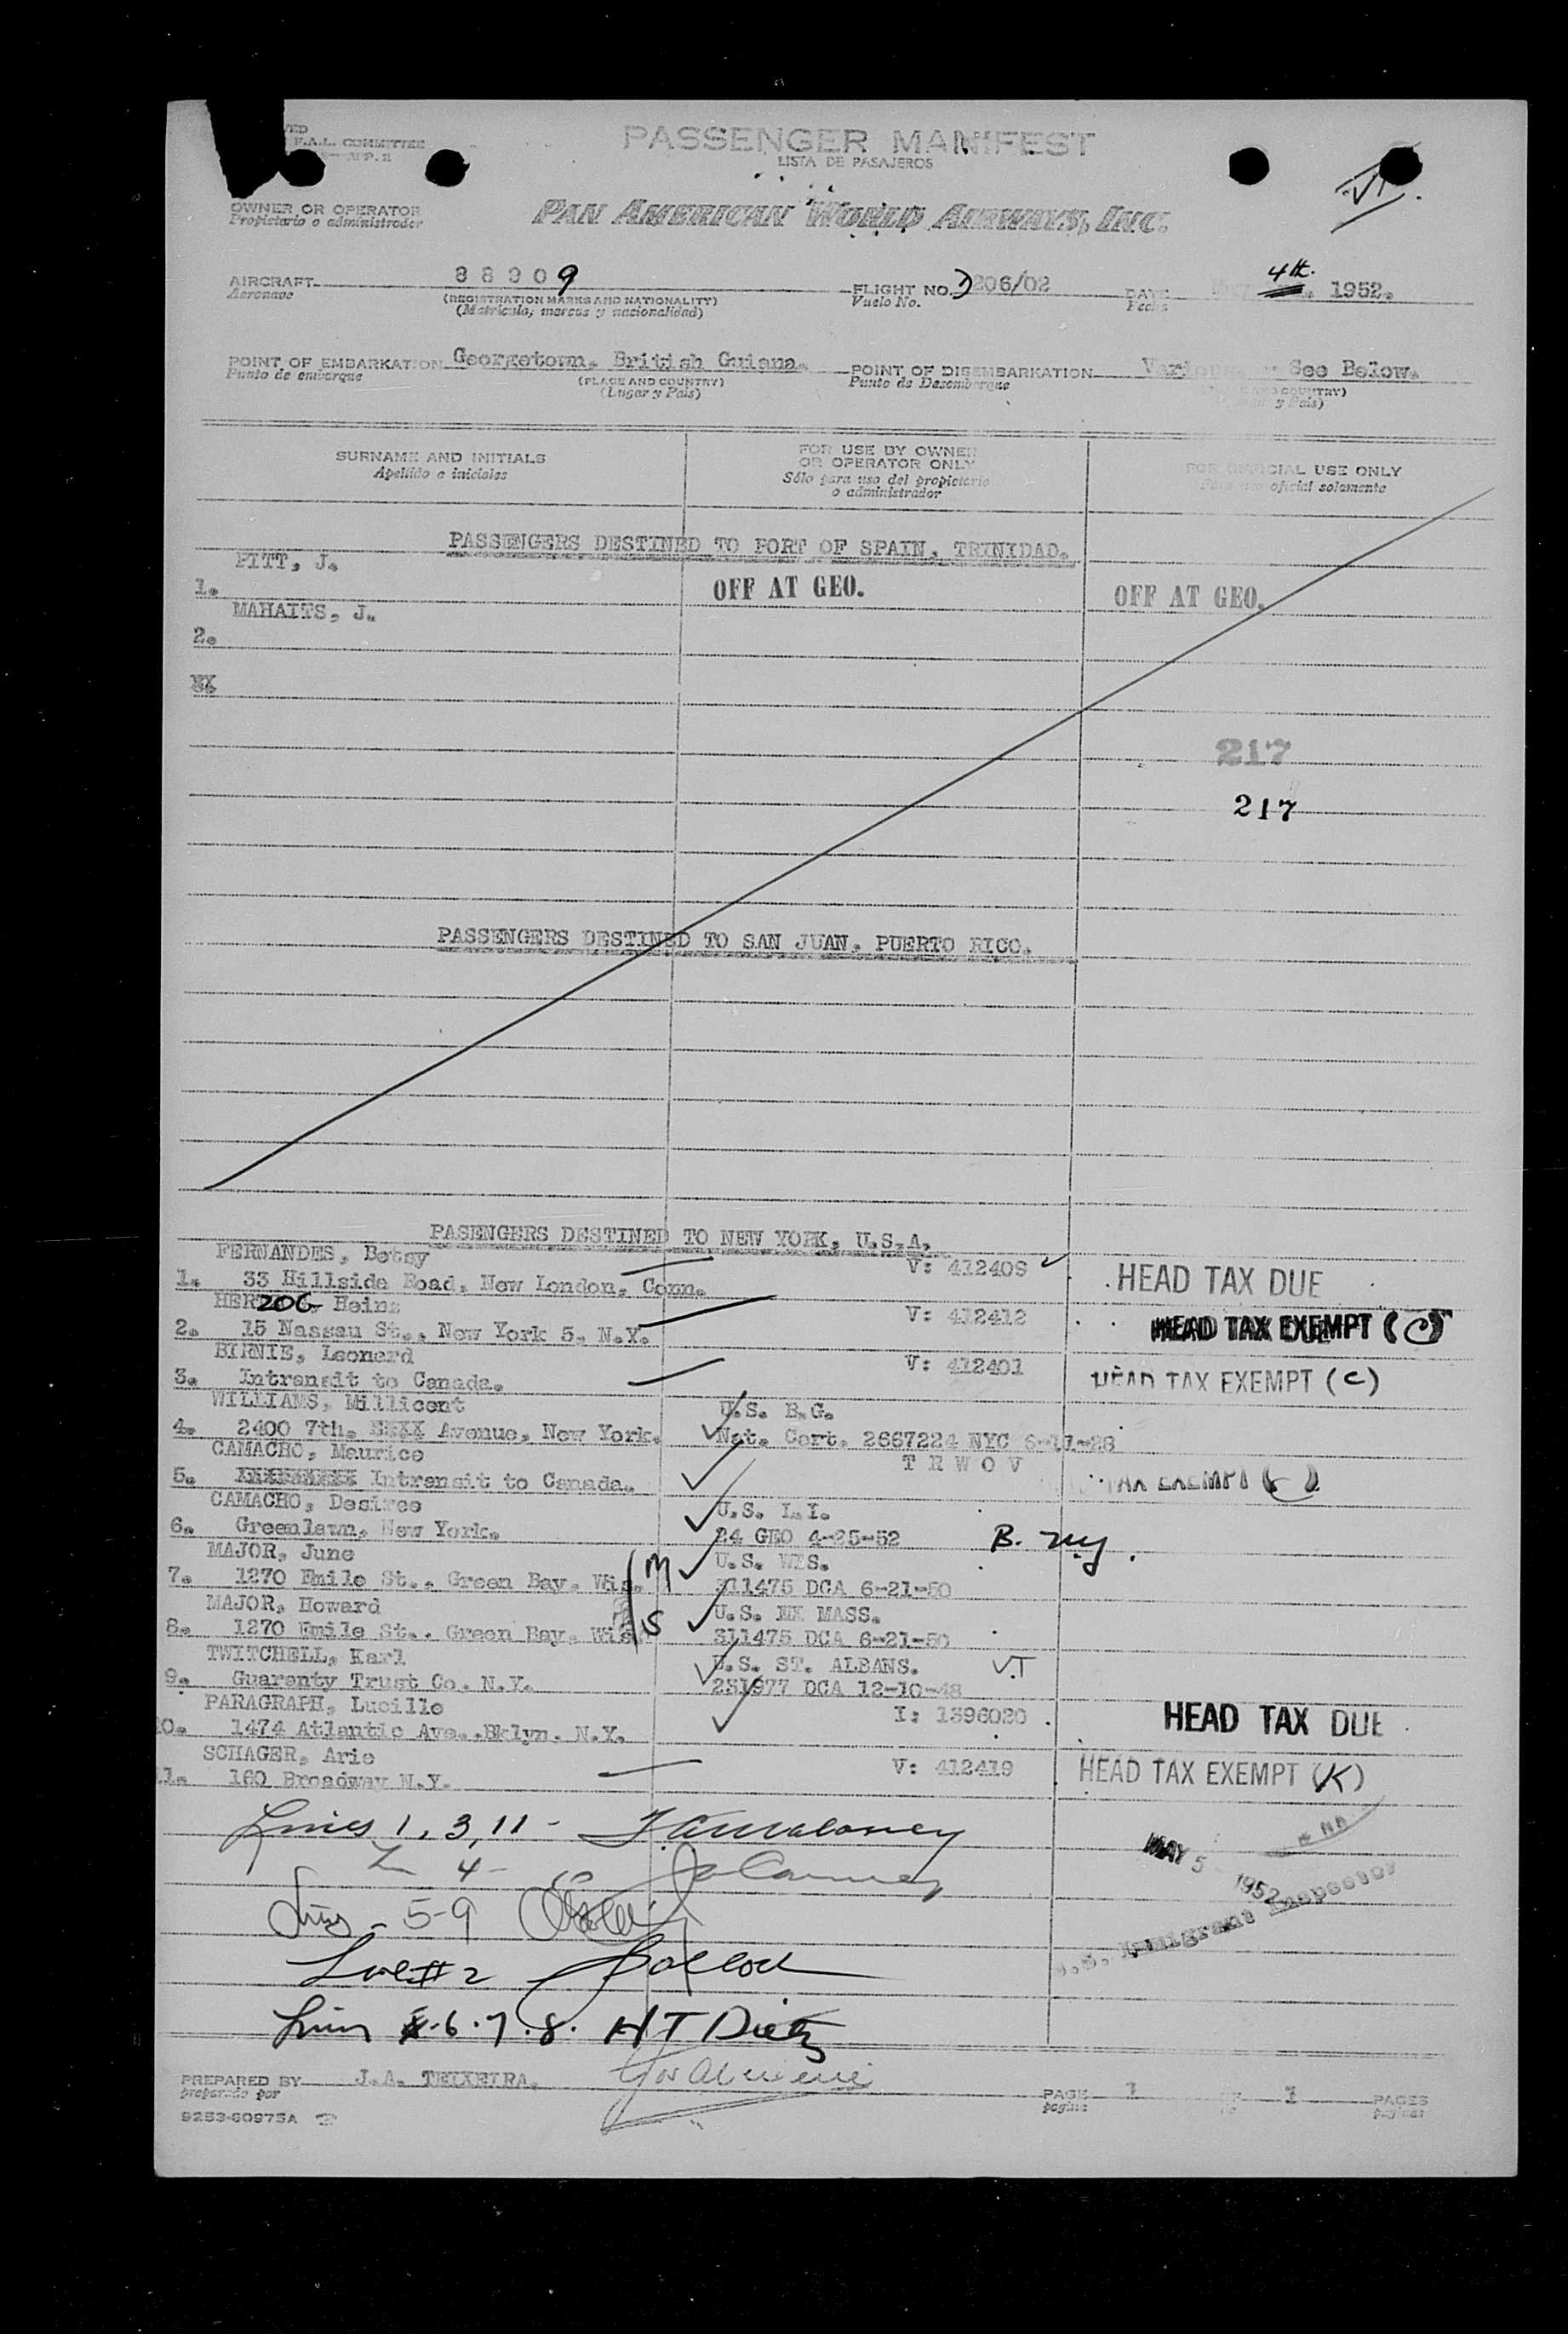 F.A.L. COMMITTEE
PASSENGER MANIFEST
LISTA DE PASAJEROS
OWNER OR OPERATOR
Propietario o administrador
PAN AMERICAN WORLD AIRWAYS, INC.
AIRCRAFT 88909 FLIGHT NO. 206/02 DATE 4th. 1952.
Aeronave (REGISTRATION MARKS AND NATIONALITY) Vuelo No. Fecha
(Matrícula, marcas y nacionalidad)
POINT OF EMBARKATION Georgetown, British Guiana. POINT OF DISEMBARKATION Various, See Below.
Punto de embarque (PLACE AND COUNTRY) Punto de Desembarque COUNTRY)
(Lugar y País) y País)
SURNAME AND INITIALS FOR USE BY OWNER FOR OFFICIAL USE ONLY
Apellido e iniciales OR OPERATOR ONLY Para uso oficial solamente
Sólo para uso del propietario
o administrador
PASSENGERS DESTINED TO PORT OF SPAIN, TRINIDAD.
PITT, J.
1. OFF AT GEO. OFF AT GEO.
MAHAITS, J.
2.
217
217
PASSENGERS DESTINED TO SAN JUAN, PUERTO RICO.
PASENGERS DESTINED TO NEW YORK, U.S.A.
FERNANDES, Betsy V: 412409
1. 33 Hillside Road, New London, Conn. HEAD TAX DUE
HERZOG, Heinz V: 412412
2. 15 Nassau St., New York 5, N.Y. HEAD TAX EXEMPT (C)
BIRNIE, Leonard V: 412401
3. Intransit to Canada. HEAD TAX EXEMPT (C)
WILLIAMS, Millicent U.S. B.G.
4. 2400 7th. Avenue, New York. Nat. Cert. 2657224 NYC 6-11-28
CAMACHO, Maurice T R W O V
5. Intransit to Canada. TAX EXEMPT (C)
CAMACHO, Desiree U.S. L.I.
6. Greenlawn, New York. 24 GEO 4-25-52 B. N.Y.
MAJOR, June M U.S. WIS.
7. 1270 Emile St., Green Bay, Wis. 311475 DCA 6-21-50
MAJOR, Howard S U.S. MASS.
8. 1270 Emile St., Green Bay, Wis. 311475 DCA 6-21-50
TWITCHELL, Karl U.S. ST. ALBANS. VT
9. Guarenty Trust Co. N.Y. 231977 DCA 12-10-48
PARAGRAPH, Lucille I: 1396020
10. 1474 Atlantic Ave., Bklyn. N.Y. HEAD TAX DUE
SCHAGER, Arie V: 412419
11. 160 Broadway N.Y. HEAD TAX EXEMPT (K)
Lines 1, 3, 11 -
4 -
MAY 5 1952
Lines - 5-9
U.S. Immigrant Inspector
Line #2
Lines 6.7.8. HT Dietz
PREPARED BY J.A. TEIXEIRA. PAGE 1 OF 1 PAGES
preparado por página páginas
9253-60975A